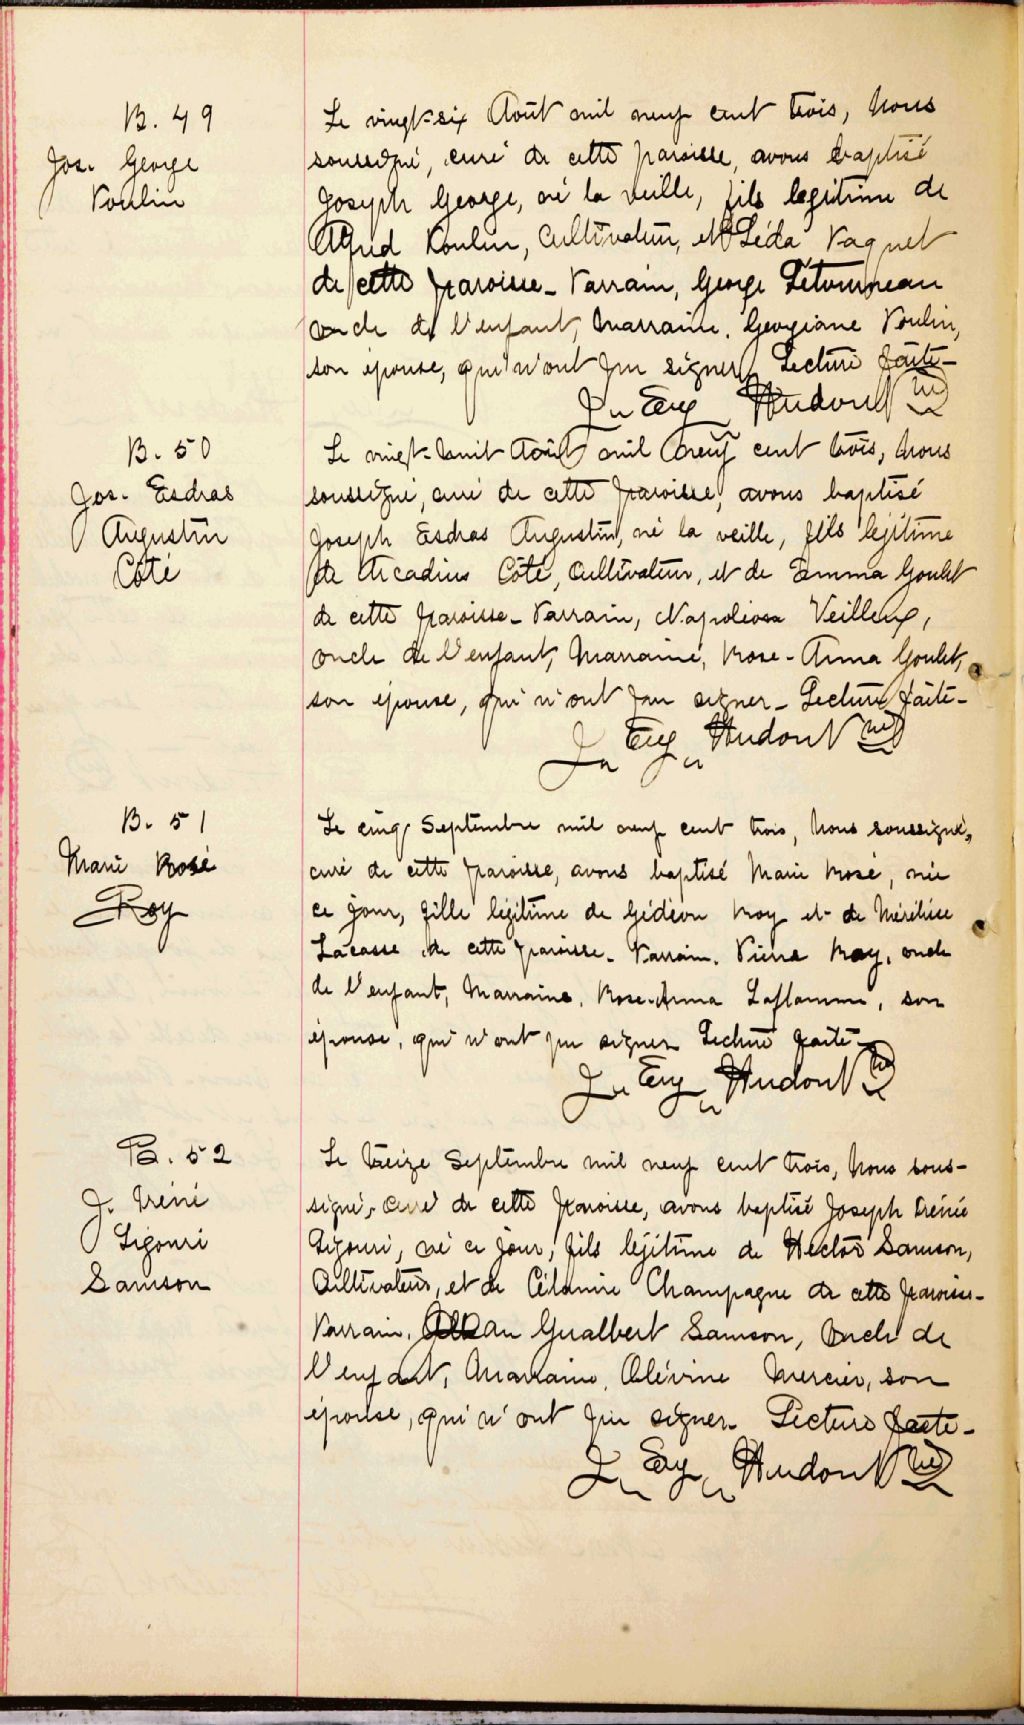 B. 49
Jos. George
Poulin
Le vingt-six Août mil neuf cent trois, Nous
soussigné, curé de cette paroisse, avons baptisé
Joseph George, né la veille, fils legitime de
Alfred Poulin, Cultivateur, et Léda Paquet
de cette paroisse - Parrain, George Létourneau
oncle de l'enfant, Marraine, Georgiane Poulin,
son épouse, qui n'ont pu signer. Lecture faite -
J. Eug. Hudon
B. 50
Jos. Esdras
Augustin
Côté
Le vingt-huit Août mil neuf cent trois, Nous
soussigné, curé de cette paroisse, avons baptisé
Joseph Esdras Augustin, né la veille, fils légitime
de Arcadius Côté, Cultivateur, et de Emma Goulet
de cette paroisse - Parrain, Napoléon Veilleux,
oncle de l'enfant, Marraine, Rose-Anna Goulet,
son épouse, qui n'ont pu signer - Lecture faite -
J. Eug. Hudon
B. 51
Marie Rose
Roy
Le cinq Septembre mil neuf cent trois, Nous soussigné,
curé de cette paroisse, avons baptisé Marie Rose, née
ce jour, fille légitime de Gédéon Roy et de
Lacasse de cette paroisse - Parrain, Pierre Roy, oncle
de l'enfant, Marraine, Rose-Anna Laflamme, son
épouse, qui n'ont pu signer Lecture faite -
J. Eug. Hudon
B. 52
J. Iréné
Ligouri
Samson
Le treize Septembre mil neuf cent trois, Nous sous-
signé, curé de cette paroisse, avons baptisé Joseph Irénée
Ligouri, né ce jour, fils légitime de Hector Samson,
Cultivateur, et de Célanire Champagne de cette paroisse -
Parrain, Gualbert Samson, Oncle de
l'enfant, Marraine, Mercier, son
épouse, qui n'ont pu signer Lecture faite -
J. Eug. Hudon